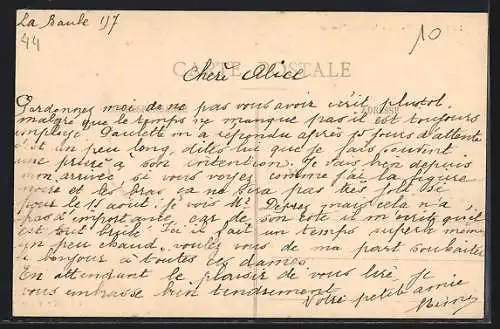 La Baule 1/7
44
10
CARTE POSTALE
Chère Alice
ADRESSE
Pardonnez moi de ne pas vous avoir écrit plustot
malgré que le temps ne manque pas il est toujours
employé. Paulette m'a répondu après 15 jours d'attente
c'est un peu long, dites lui que je fais souvent
une prière à son intention. Je suis bien depuis
mon arrivée si vous voyez comme j'ai la figure
noire et les bras, ça ne sera pas très joli
pour le 15 aout. je vois Mr Deprez mais cela n'a
pas d'importance car de son coté il m'écrit qu'il
est tout brulé. Ici il fait un temps superbe même
un peu chaud. voulez vous de ma part souhaiter
le bonjour à toutes ces dames.
En attendant le plaisir de vous lire je
vous embrasse bien tendrement.
Votre petite amie